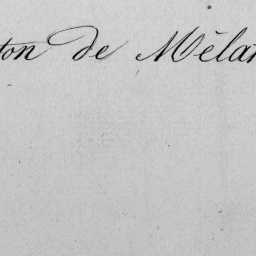 ton de Mélan